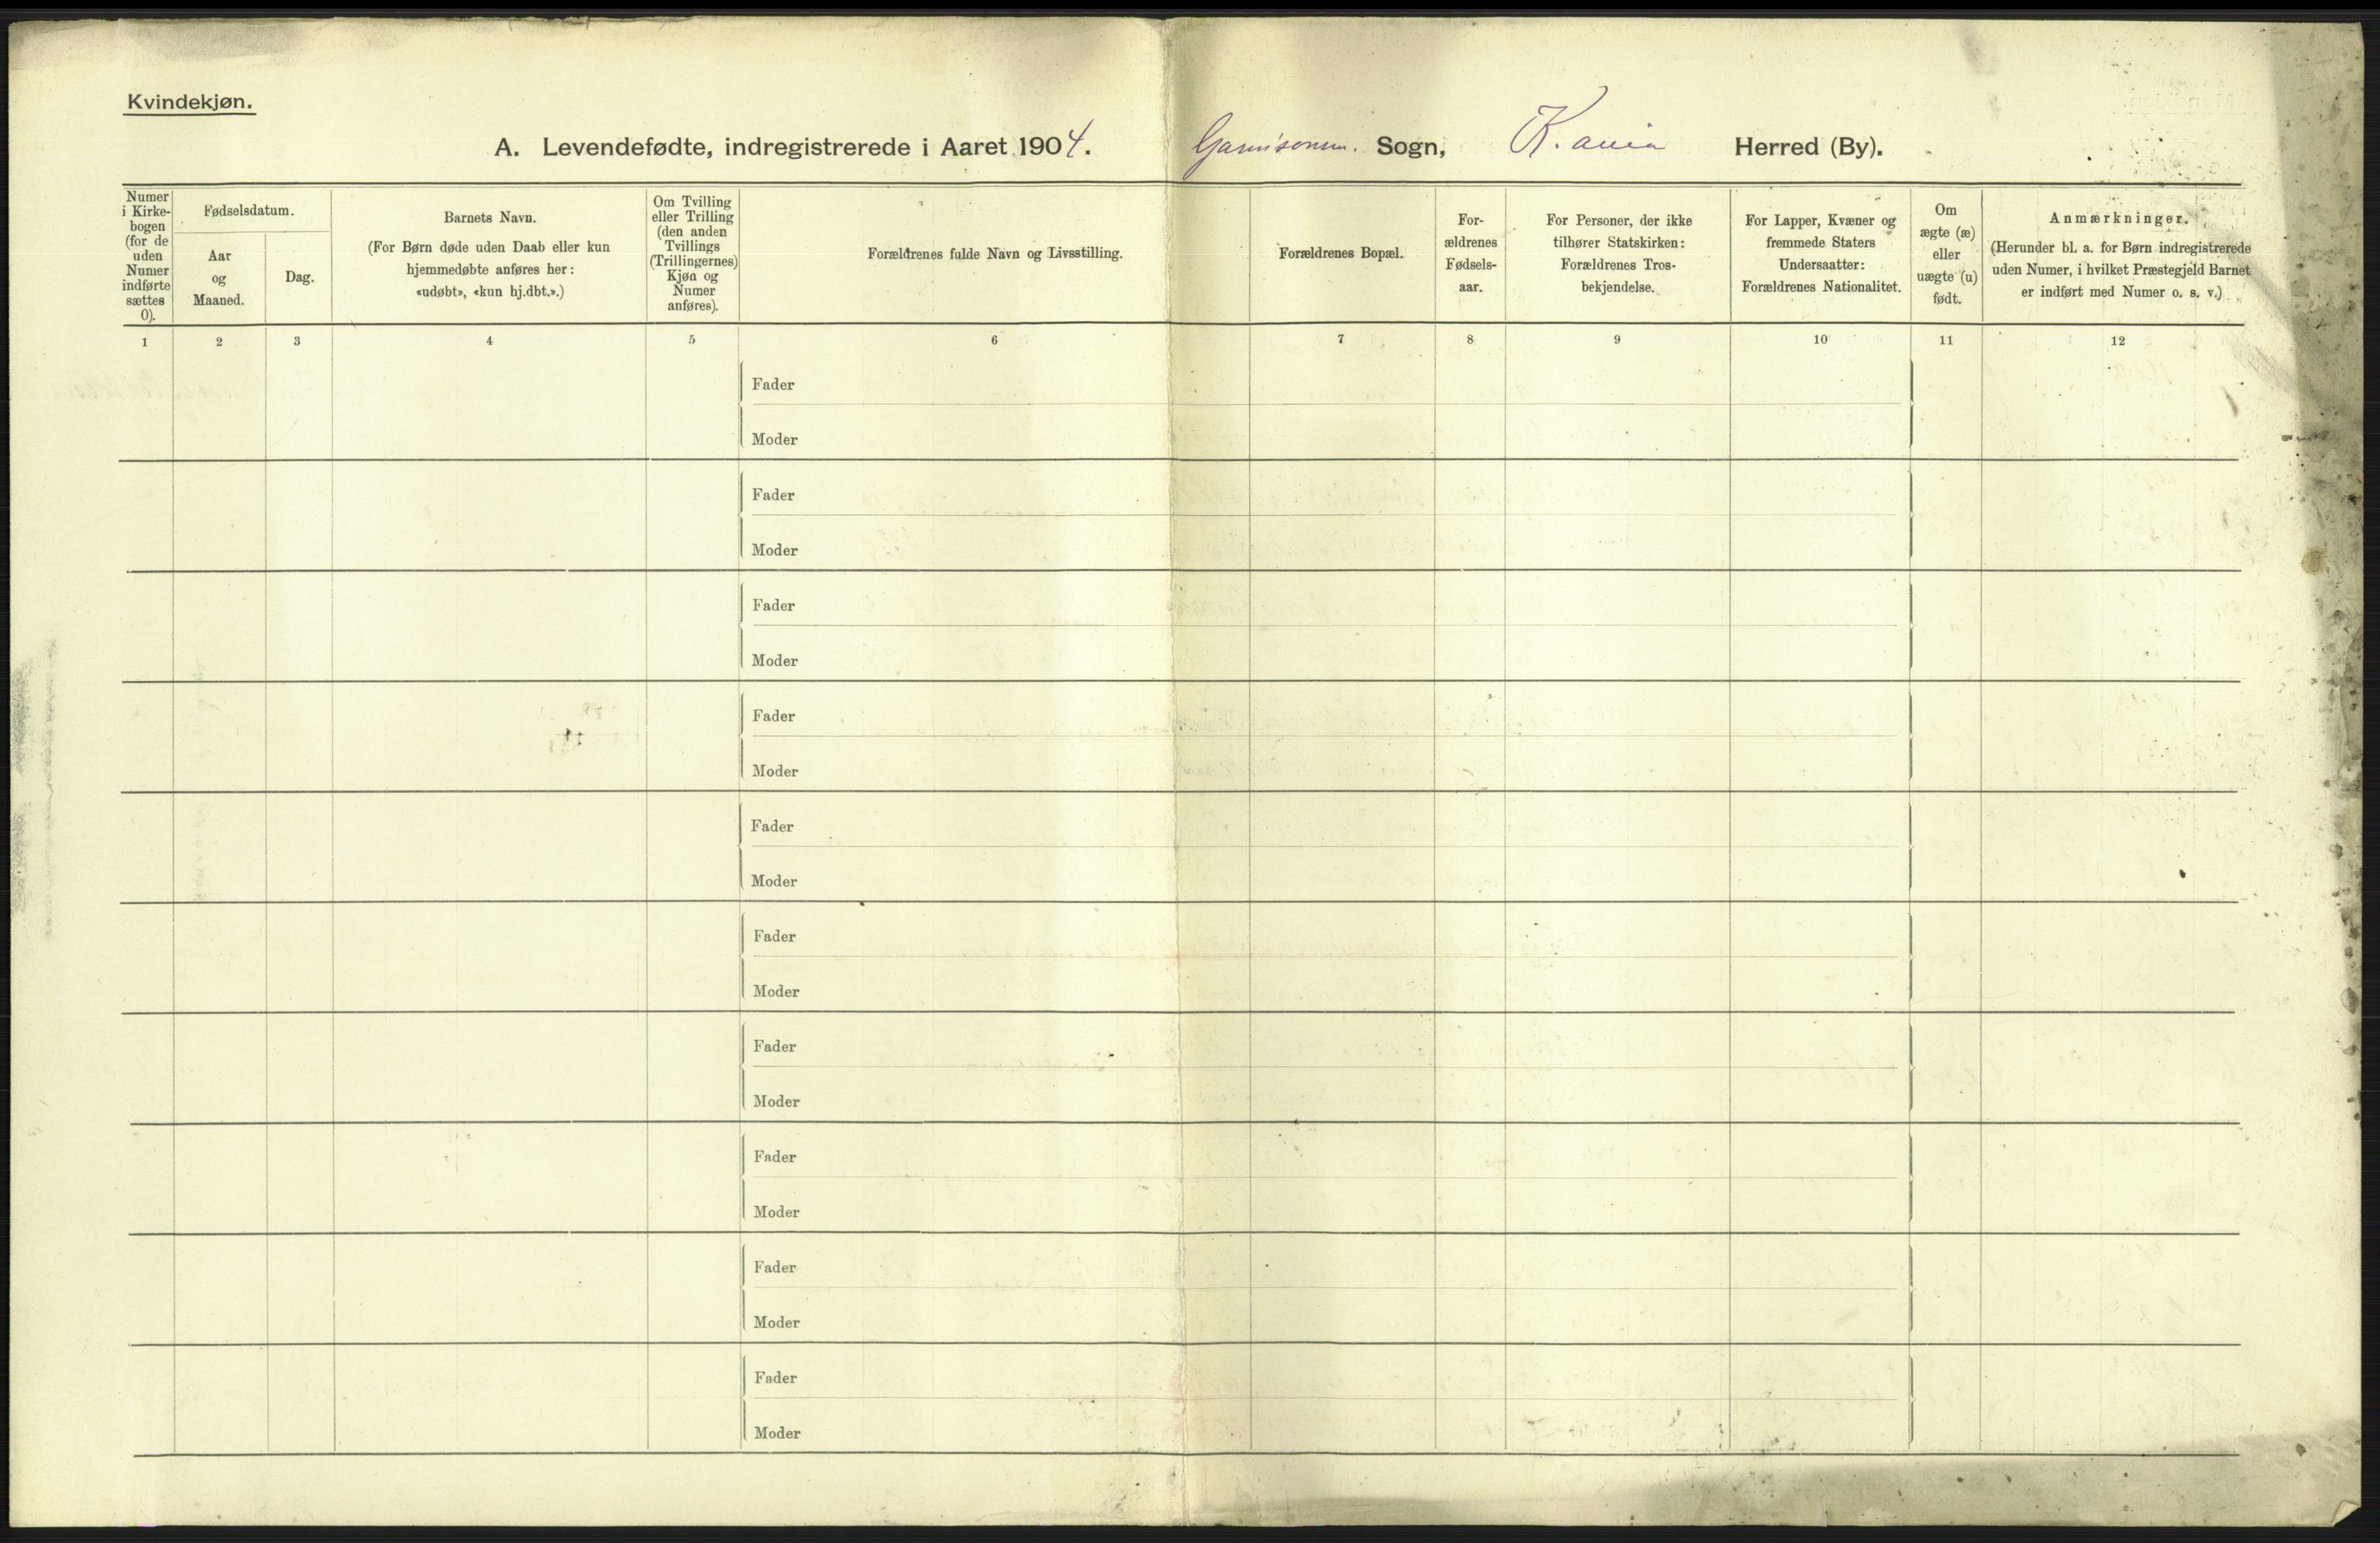 Kvindekjøn.
A. Levendefødte, indregistrerede i Aaret 1904. Garnisonsm. Sogn, K.ania Herred (By).
Numer
i Kirke-
bogen
(for de
uden
Numer
indførte
sættes
0).
Fødselsdatum.
Aar
og
Maaned.
Dag.
Barnets Navn.
(For Børn døde uden Daab eller kun
hjemmedøbte anføres her:
«udøbt», «kun hj.dbt.».)
Om Tvilling
eller Trilling
(den anden
Tvillings
(Trillingernes)
Kjøn og
Numer
anføres).
Forældrenes fulde Navn og Livsstilling.
Forældrenes Bopæl.
For-
ældrenes
Fødsels-
aar.
For Personer, der ikke
tilhører Statskirken:
Forældrenes Tros-
bekjendelse.
For Lapper, Kvæner og
fremmede Staters
Undersaatter:
Forældrenes Nationalitet.
Om
ægte (æ)
eller
uægte (u)
født.
Anmærkninger.
(Herunder bl. a. for Børn indregistrerede
uden Numer, i hvilket Præstegjeld Barnet
er indført med Numer o. s. v.)
1 2 3 4 5 6 7 8 9 10 11 12
Fader
Moder
Fader
Moder
Fader
Moder
Fader
Moder
Fader
Moder
Fader
Moder
Fader
Moder
Fader
Moder
Fader
Moder
Fader
Moder